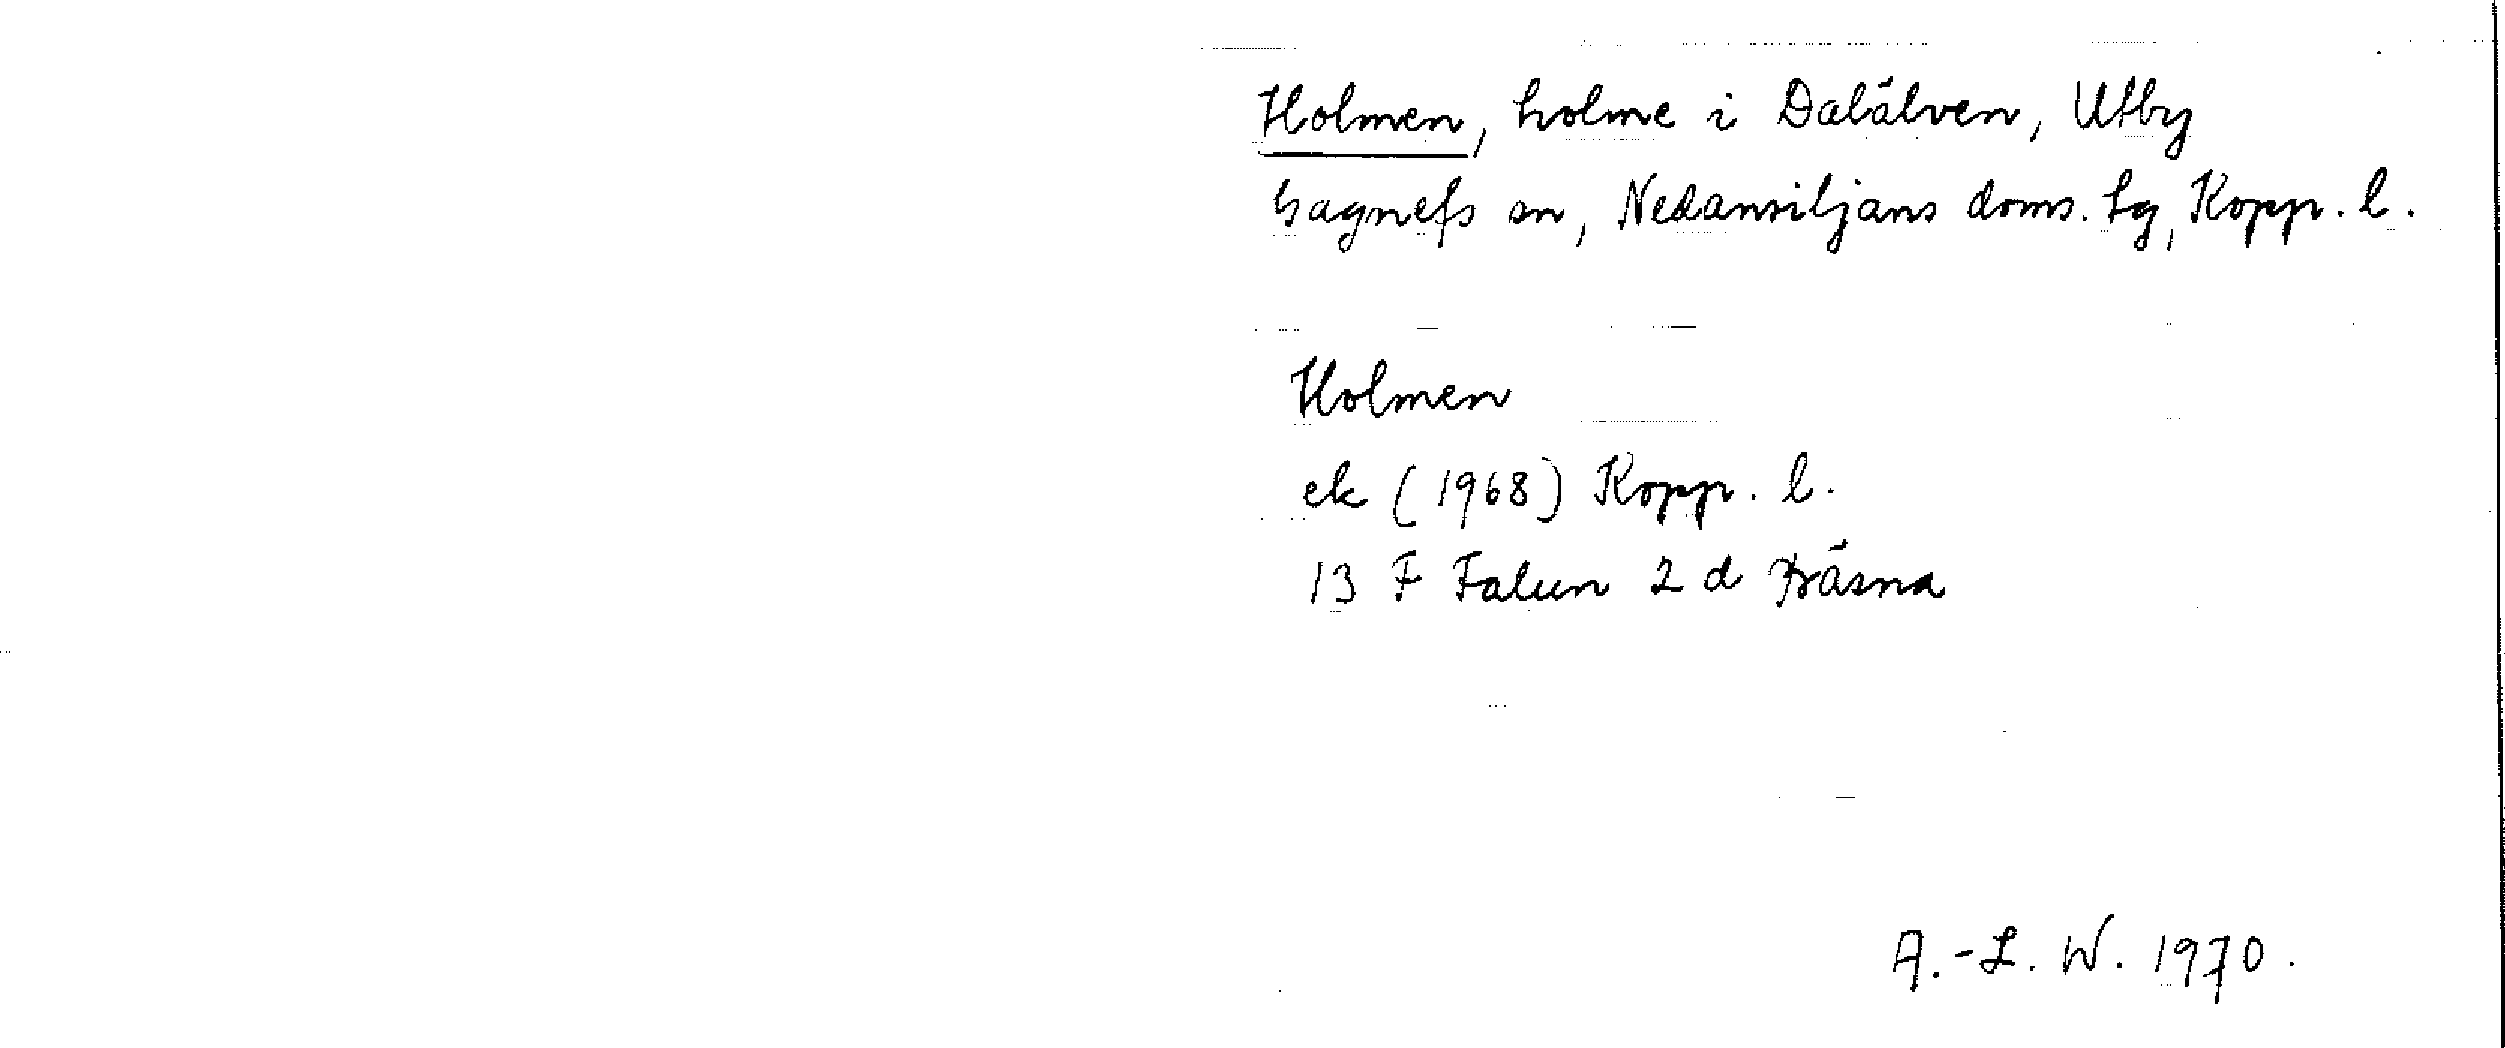 Holmen, holme i Dalälven, Utby
Gagnefs sn, Nedansiljans doms. tg, Kopp. l.
Holmen
ek (1968) Kopp. l.
13 F Falun 2 d Träsna
A.-L. W. 1970.